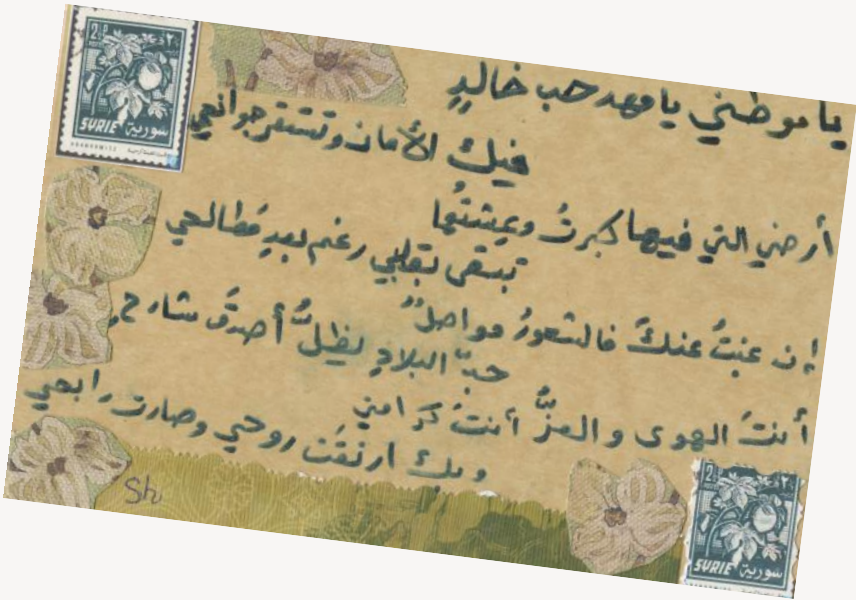 يا موطني يا مهد حب خالدٍ
فيك الأمان وتستقر جوانحي
أرضي التي فيها كبرتُ وعِشتُها
تبقى بقلبي رغم بعدِ مَطالحي
إن غبتُ عنكَ فالشعورُ مواصلٌ
حبّ البلادِ يظلُّ أصدقُ شارحٍ
أنتَ الهوى والعزُّ أنتَ كرامتي
وبك ارتقَت روحي وصارت رابحي
Sh
2½P
SYRIE سورية
2½P
SYRIE سورية